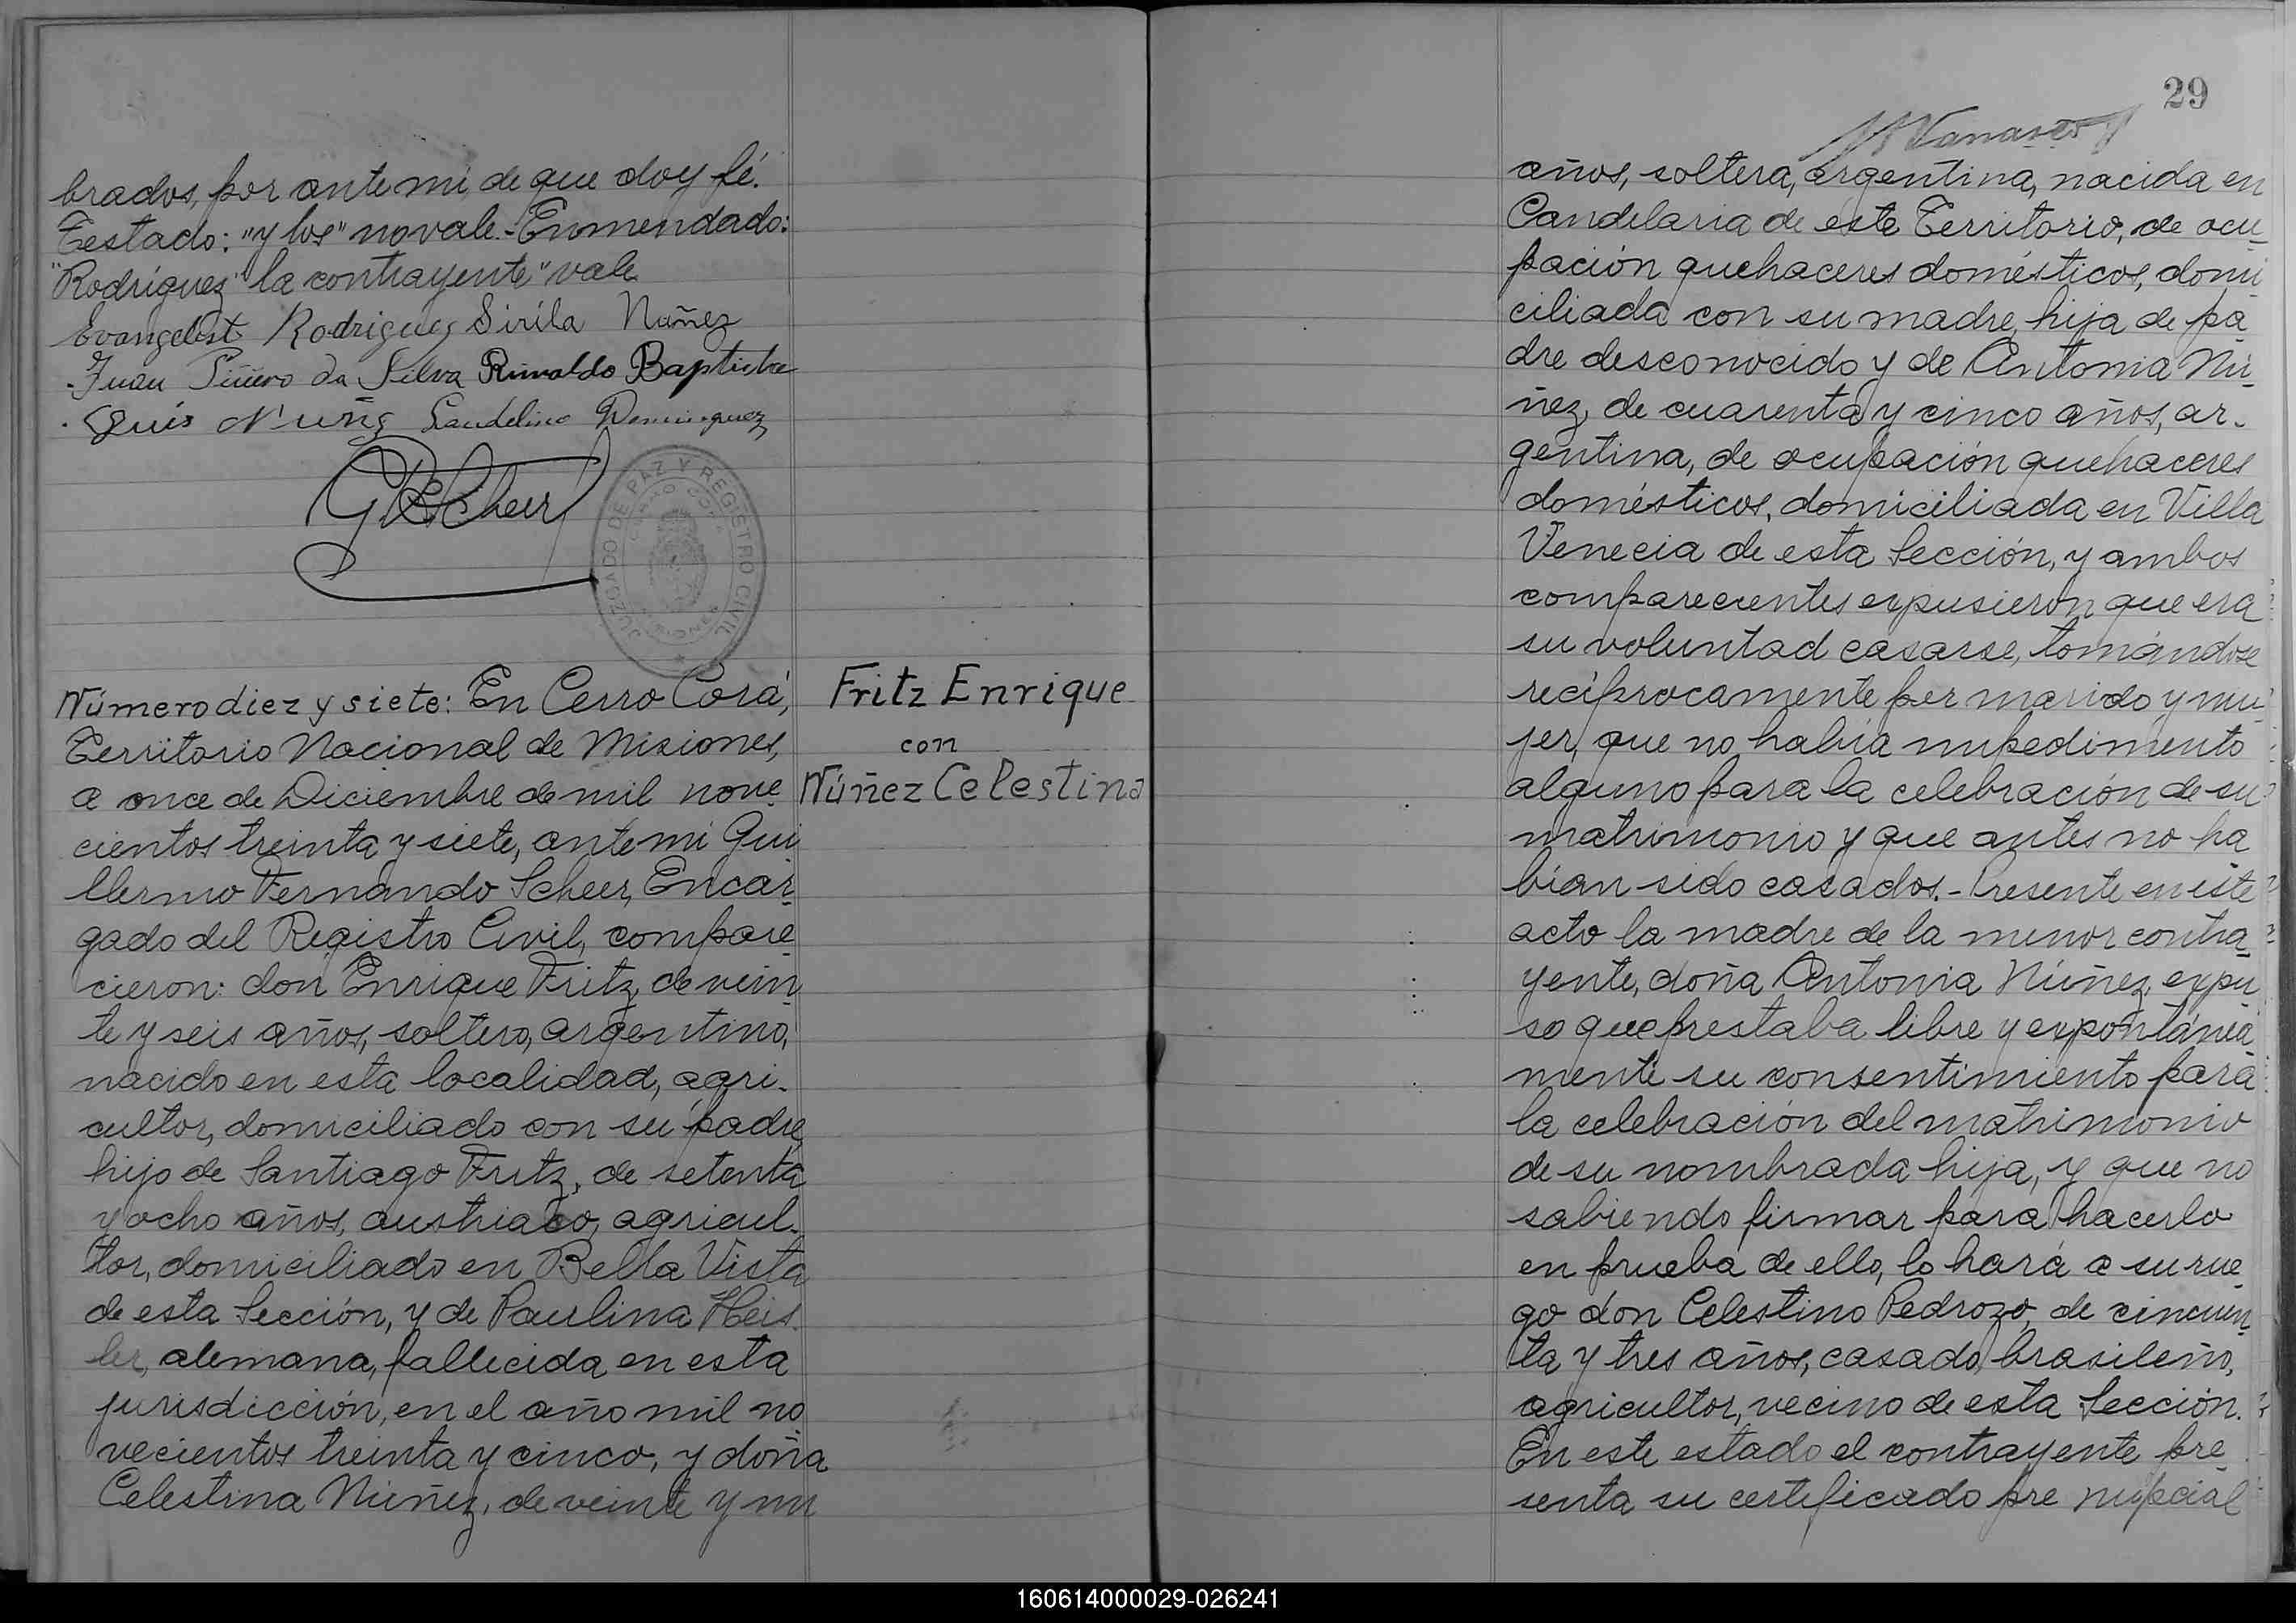 brados, por ante mí, de que doy fé.
Testado: "y los" no vale.- Enmendado:
"Rodríguez" "la contrayente" vale
Evangelist Rodriguez Sirila Nuñez
Juan Piñero da Silva Rimaldo Baptista
Luis Nuñez Laudelino Dominguez
G F Scheer
JUZGADO DE PAZ Y REGISTRO CIVIL
CERRO CORÁ
Número diez y siete: En Cerro Corá,
Territorio Nacional de Misiones,
a once de Diciembre de mil nove
cientos treinta y siete, ante mi Gui
llermo Fernando Scheer, Encar
gado del Registro Civil, compare
cieron: don Enrique Fritz, de vein
te y seis años, soltero, argentino,
nacido en esta localidad, agri-
cultor, domiciliado con su padre,
hijo de Santiago Fritz, de setenta
y ocho años, austriaco, agricul-
tor, domiciliado en Bella Vista
de esta Sección, y de Paulina Heis-
ler, alemana, fallecida en esta
jurisdicción, en el año mil no
vecientos treinta y cinco, y doña
Celestina Núñez, de veinte y un
Fritz Enrique
con
Núñez Celestina
29
años, soltera, argentina, nacida en
Candelaria de este Territorio, de ocu
pación quehaceres domésticos, domi
ciliada con su madre, hija de pa
dre desconocido y de Antonia Nú
ñez, de cuarenta y cinco años, ar-
gentina, de ocupación quehaceres
domésticos, domiciliada en Villa
Venecia de esta Sección, y ambos
comparecientes expusieron que era
su voluntad casarse, tomándose
recíprocamente por marido y mu
jer, que no había impedimento
alguno para la celebración de su
matrimonio y que antes no ha
bían sido casados.- Presente en este
acto la madre de la menor contra
yente, doña Antonia Núñez, expu
so que prestaba libre y expontánea
mente su consentimiento para
la celebración del matrimonio
de su nombrada hija, y que no
sabiendo firmar para hacerlo
en prueba de ello, lo hará a su rue
go don Celestino Pedrozo, de cincuen
ta y tres años, casado, brasileño,
agricultor, vecino de esta Sección.
En este estado el contrayente pre
senta su certificado pre nupcial
160614000029-026241